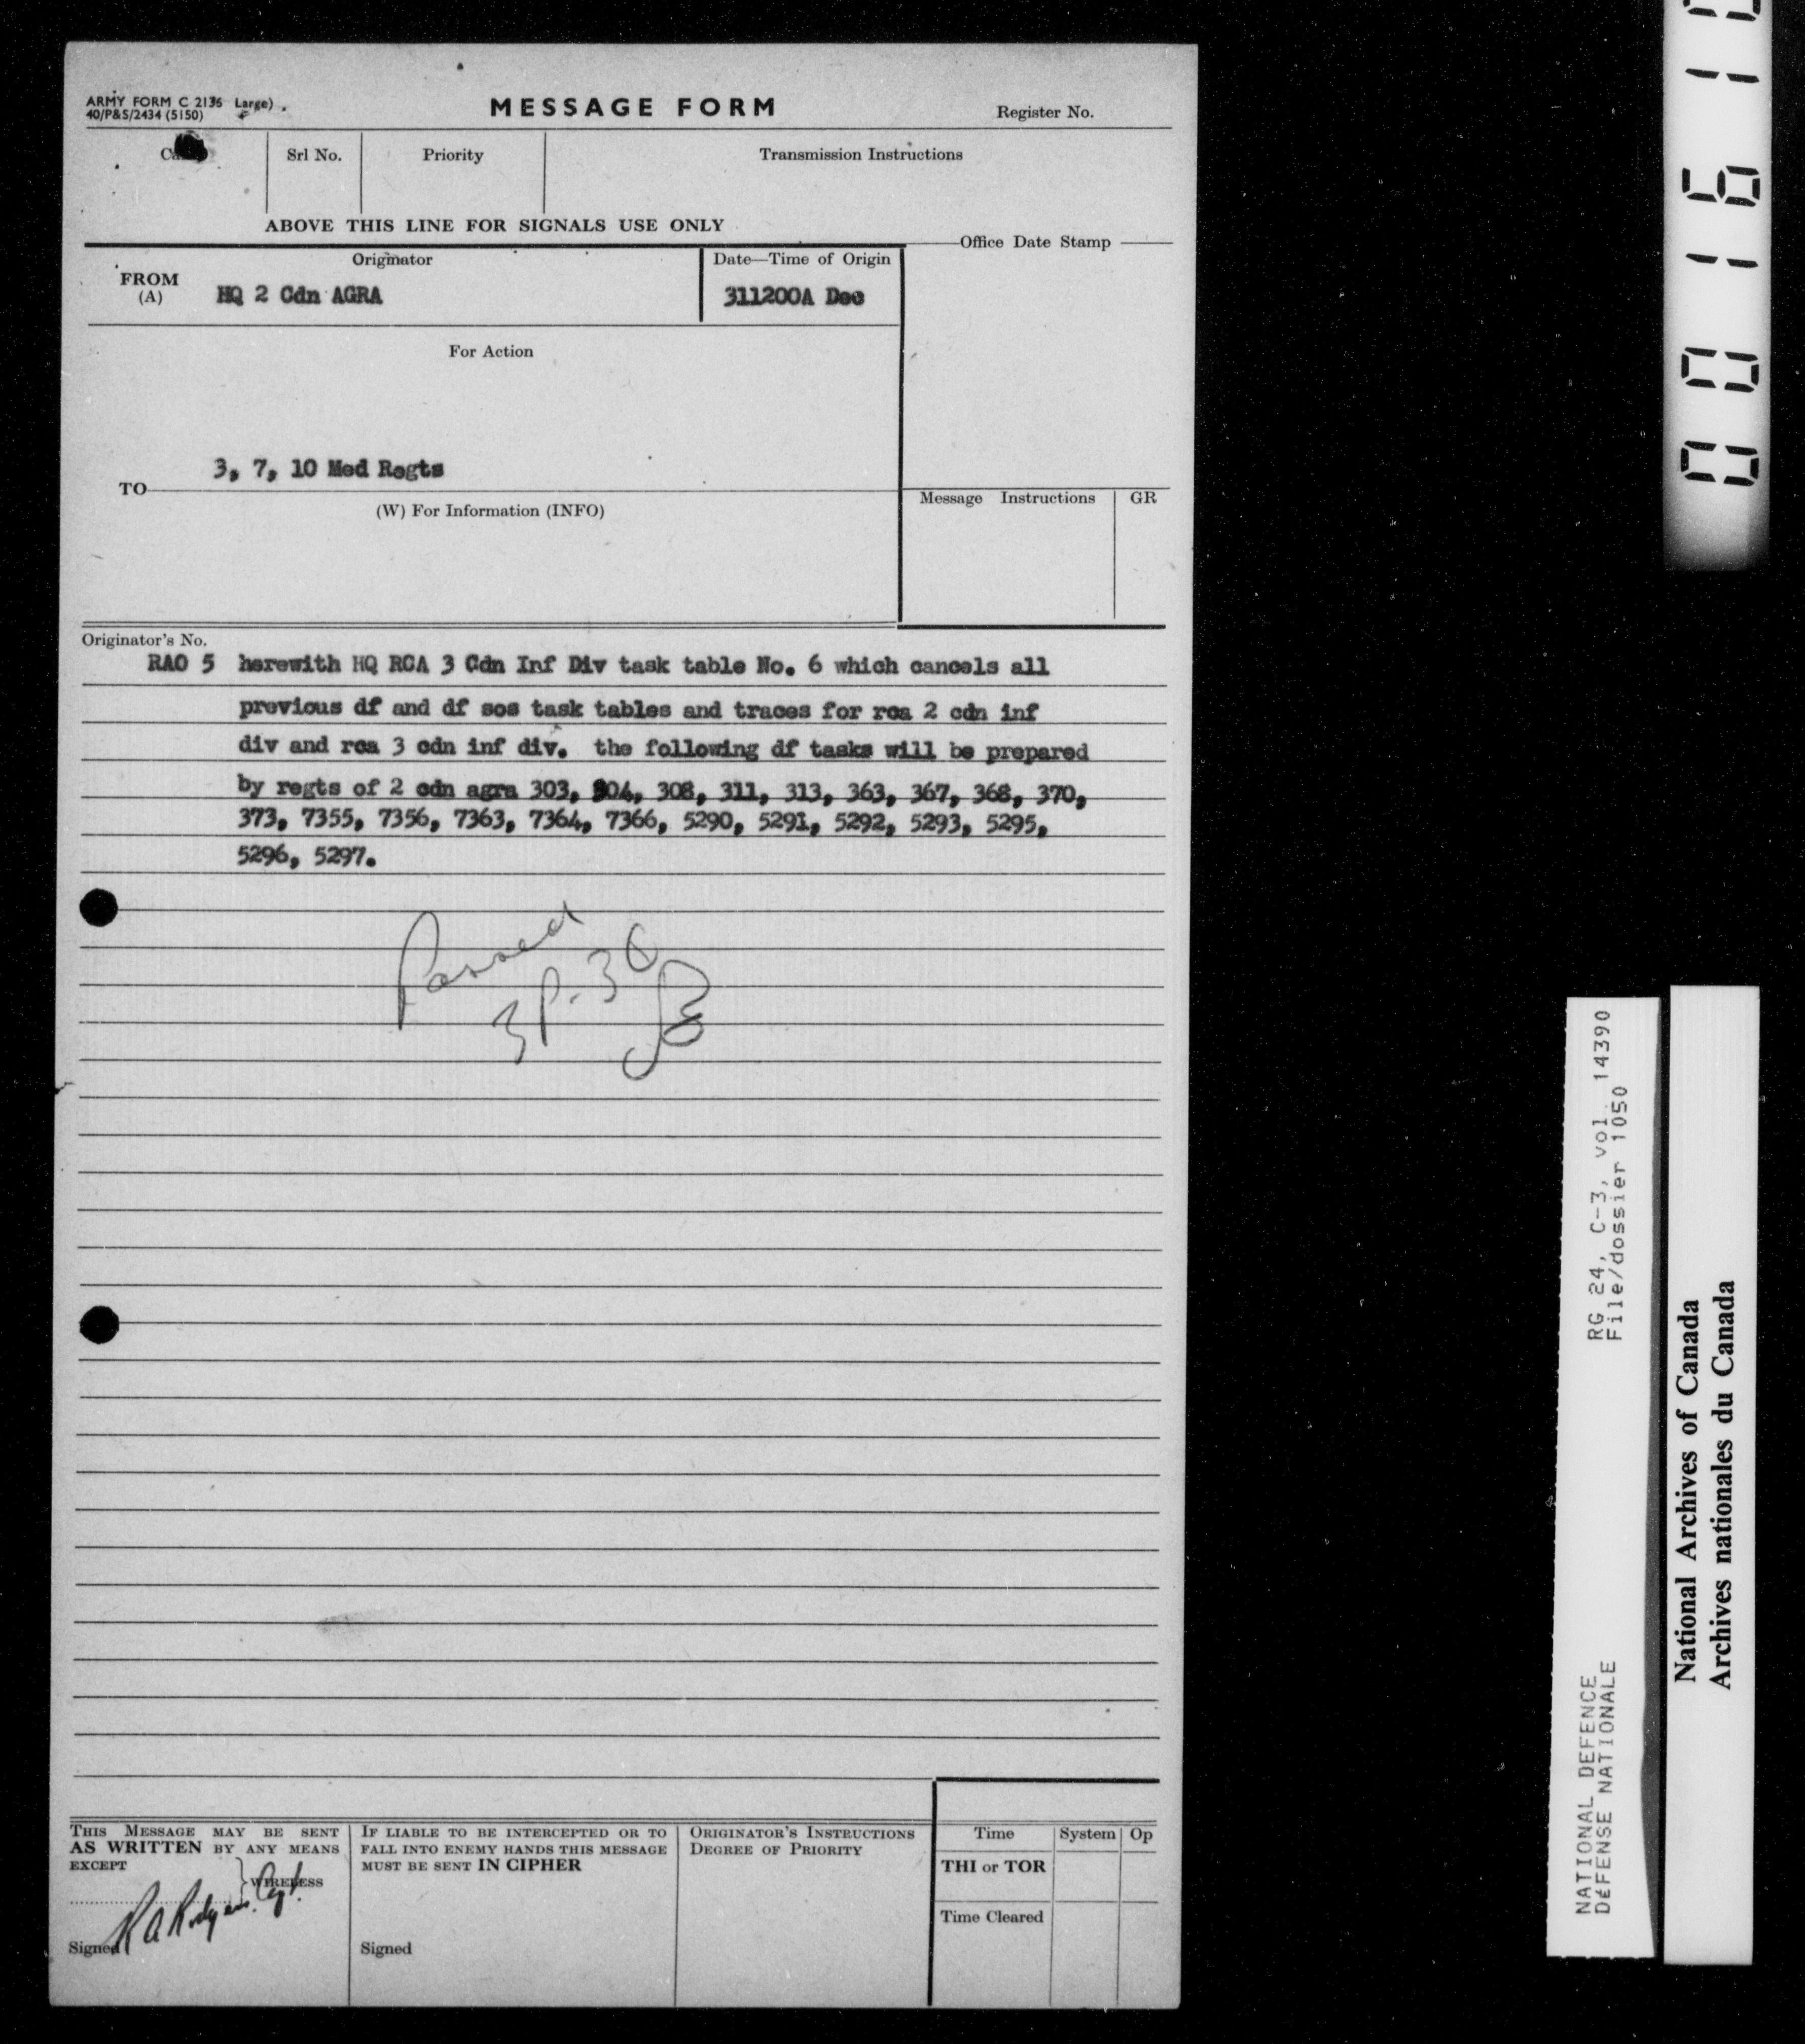 ARMY FORM C 2136 Large)
40/P&S/2434 (5150)
MESSAGE FORM
Register No.
Srl No.
Priority
Transmission Instructions
ABOVE THIS LINE FOR SIGNALS USE ONLY
Office Date Stamp
Originator
Date—Time of Origin
FROM
(A)
HQ 2 Cdn AGRA
311200A Dec
For Action
3, 7, 10 Med Regts
TO
(W) For Information (INFO)
Message Instructions
GR
Originator's No.
RAO 5 herewith HQ RCA 3 Cdn Inf Div task table No. 6 which cancels all
previous df and df sos task tables and traces for rca 2 cdn inf
div and rca 3 cdn inf div. the following df tasks will be prepared
by regts of 2 cdn agra 303, 304, 308, 311, 313, 363, 367, 368, 370,
373, 7355, 7356, 7363, 7364, 7366, 5290, 5291, 5292, 5293, 5295,
5296, 5297.
Passed
THIS MESSAGE MAY BE SENT
AS WRITTEN BY ANY MEANS
EXCEPT
WIRELESS
Capt.
Signed
IF LIABLE TO BE INTERCEPTED OR TO
FALL INTO ENEMY HANDS THIS MESSAGE
MUST BE SENT IN CIPHER
Signed
ORIGINATOR'S INSTRUCTIONS
DEGREE OF PRIORITY
Time
System
Op
THI or TOR
Time Cleared
RG 24, C-3, vol. 14390
File/dossier 1050
NATIONAL DEFENCE
DÉFENSE NATIONALE
National Archives of Canada
Archives nationales du Canada